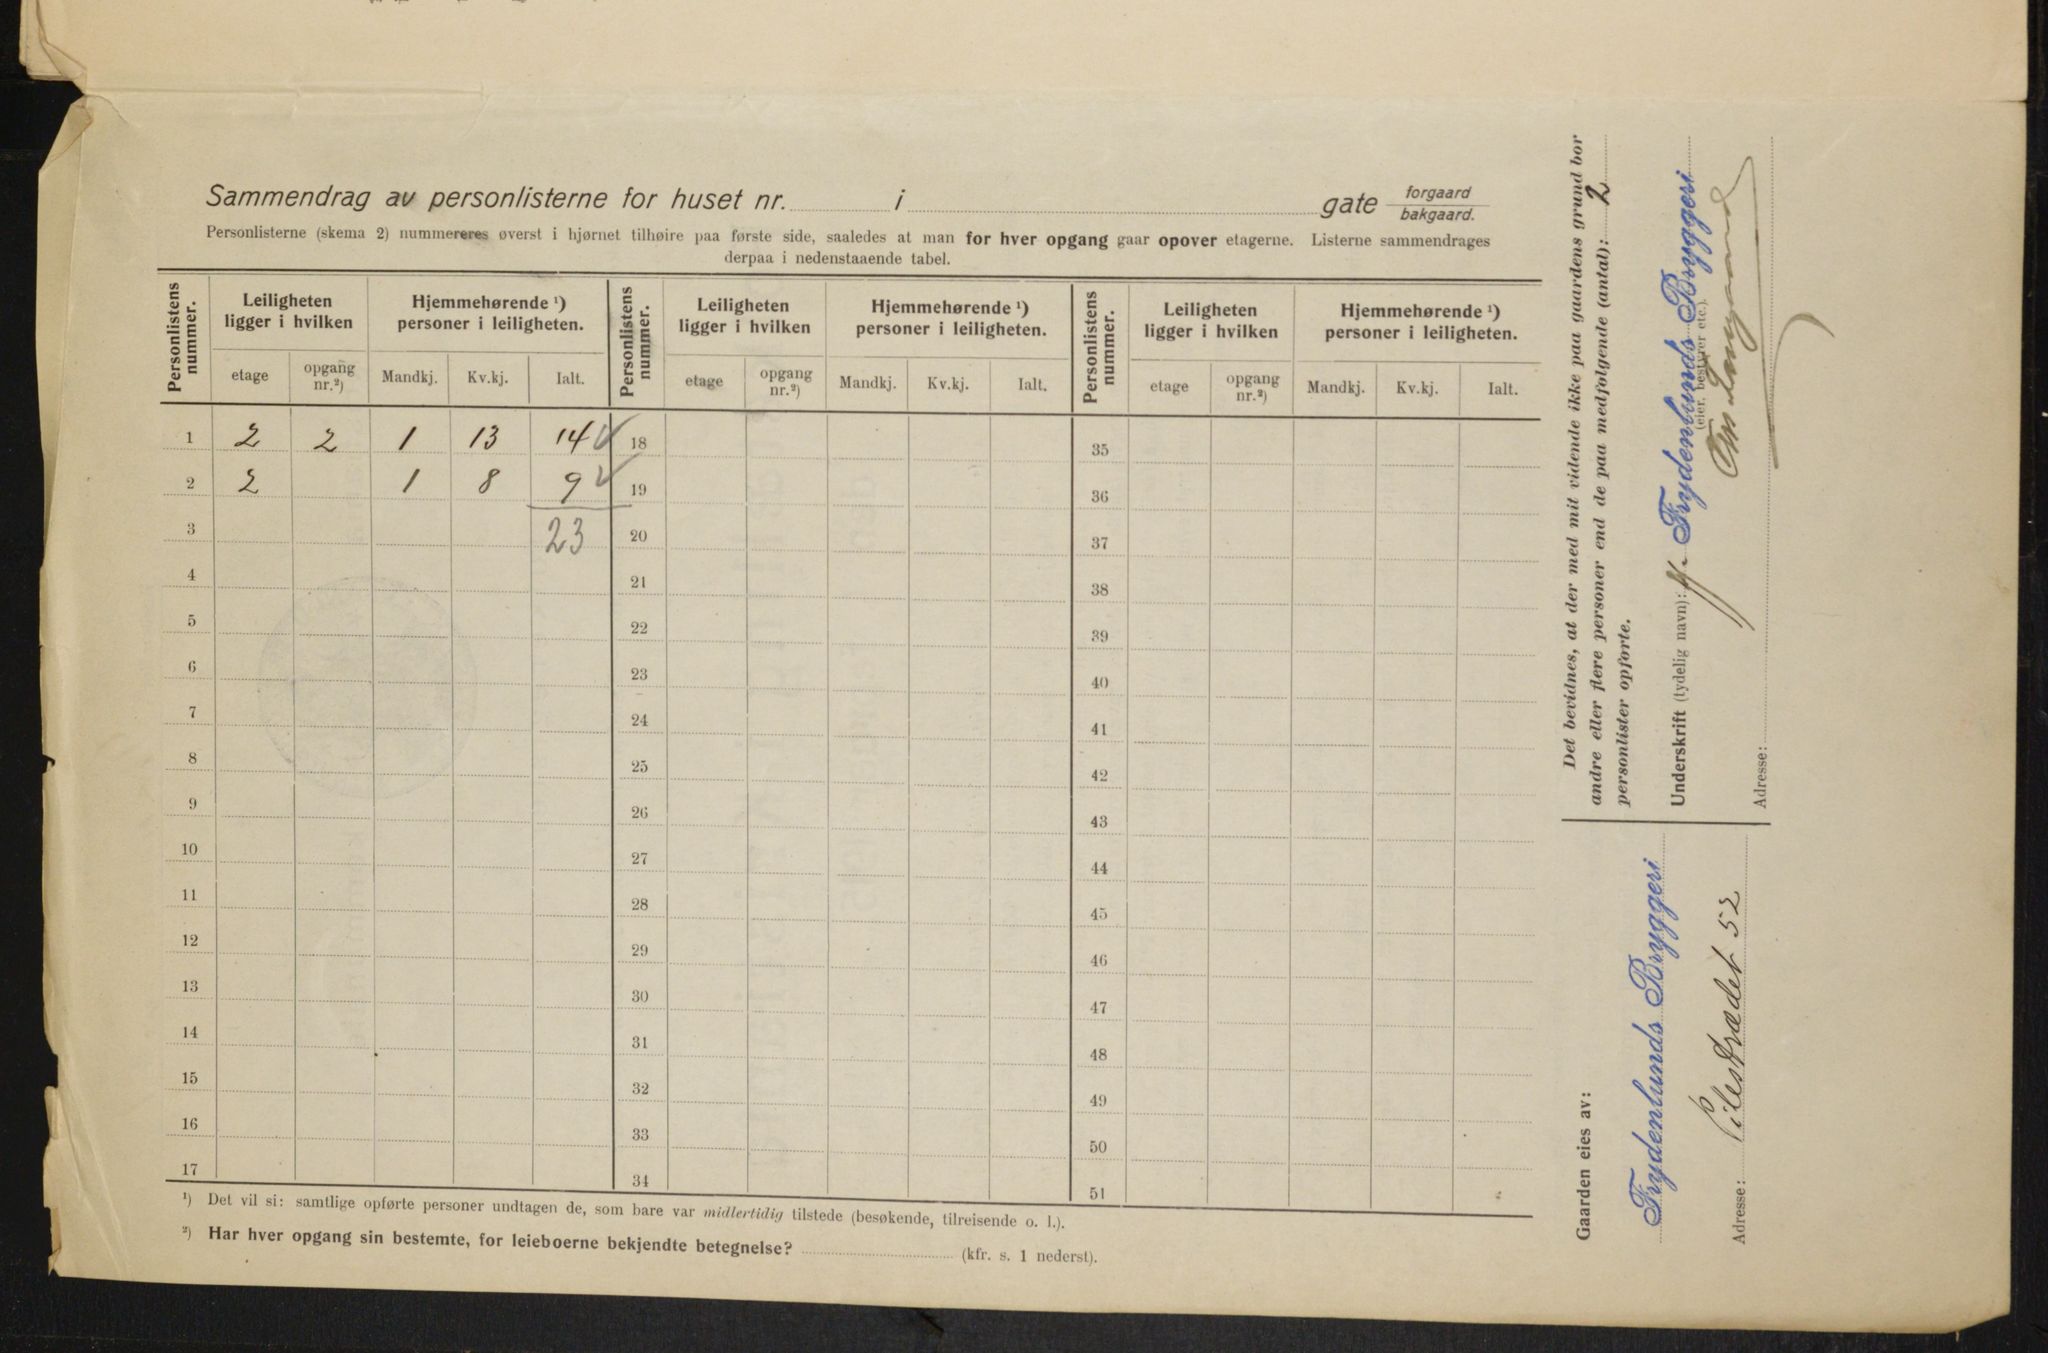 Sammendrag av personlisterne for huset nr. i gate forgaard
bakgaard.
Personlisterne (skema 2) nummereres øverst i hjørnet tilhøire paa første side, saaledes at man for hver opgang gaar opover etagerne. Listerne sammendrages
derpaa i nedenstaaende tabel.
Personlistens nummer. Leiligheten ligger i hvilken Hjemmehørende ¹) personer i leiligheten. Personlistens nummer. Leiligheten ligger i hvilken Hjemmehørende ¹) personer i leiligheten. Personlistens nummer. Leiligheten ligger i hvilken Hjemmehørende ¹) personer i leiligheten.
etage opgang nr.²) Mandkj. Kv.kj. Ialt. etage opgang nr.²) Mandkj. Kv.kj. Ialt. etage opgang nr.²) Mandkj. Kv.kj. Ialt.
1 2 2 1 13 14 18 35
2 2 1 8 9 19 36
3 23 20 37
4 21 38
5 22 39
6 23 40
7 24 41
8 25 42
9 26 43
10 27 44
11 28 45
12 29 46
13 30 47
14 31 48
15 32 49
16 33 50
17 34 51
¹) Det vil si: samtlige opførte personer undtagen de, som bare var midlertidig tilstede (besøkende, tilreisende o. l.).
²) Har hver opgang sin bestemte, for leieboerne bekjendte betegnelse? (kfr. s. 1 nederst).
Gaarden eies av:
Frydenlunds Bryggeri
Adresse: Pilestrædet 52
Det bevidnes, at der med mit vidende ikke paa gaardens grund bor
andre eller flere personer end de paa medfølgende (antal): 2
personlister opførte.
Underskrift (tydelig navn): Frydenlunds Bryggeri
(eier, bestyrer etc.).
Adresse: